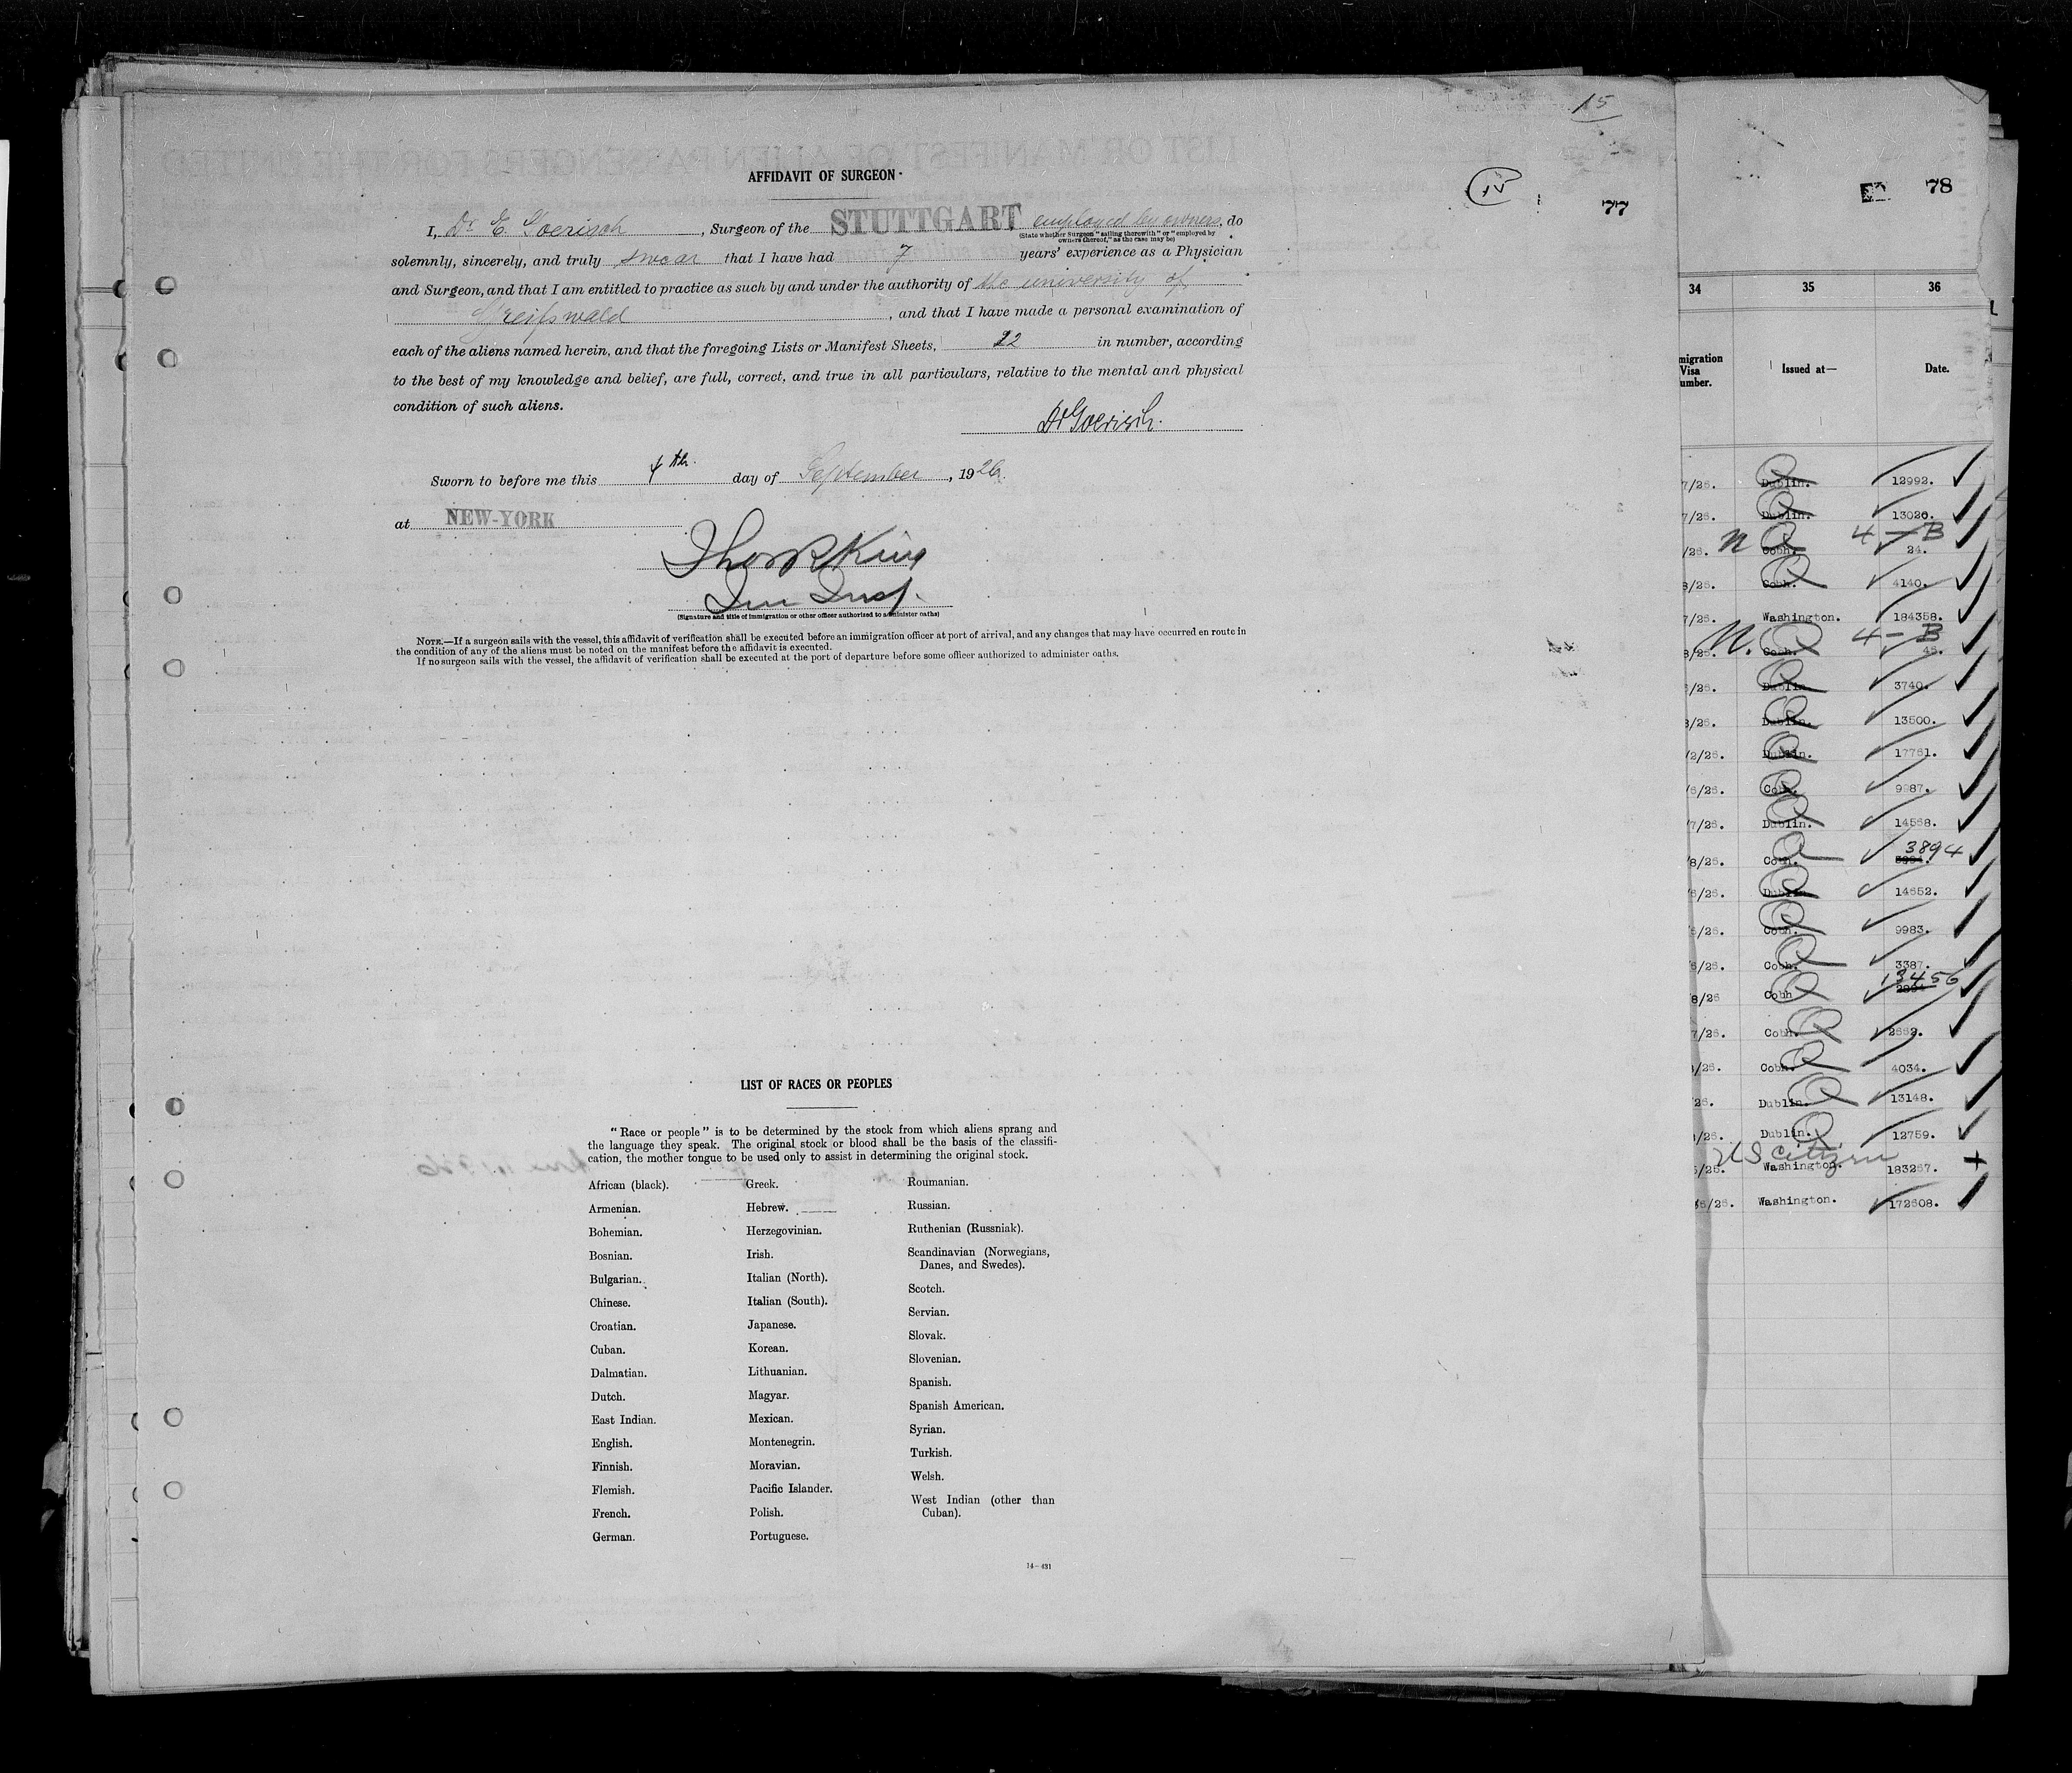 15
AFFIDAVIT OF SURGEON
77
I, Dr E. Goerisch, Surgeon of the STUTTGART employed by owners, do
(State whether Surgeon "sailing therewith" or "employed by
owners thereof," as the case may be)
solemnly, sincerely, and truly swear that I have had 7 years' experience as a Physician
and Surgeon, and that I am entitled to practice as such by and under the authority of the university of
Greifswald, and that I have made a personal examination of
each of the aliens named herein, and that the foregoing Lists or Manifest Sheets, 22 in number, according
to the best of my knowledge and belief, are full, correct, and true in all particulars, relative to the mental and physical
condition of such aliens.
Dr Goerisch.
Sworn to before me this 4th. day of September, 1926.
at NEW-YORK
Thos R King
Imm Insp.
(Signature and title of immigration or other officer authorized to administer oaths)
NOTE.—If a surgeon sails with the vessel, this affidavit of verification shall be executed before an immigration officer at port of arrival, and any changes that may have occurred en route in
the condition of any of the aliens must be noted on the manifest before the affidavit is executed.
If no surgeon sails with the vessel, the affidavit of verification shall be executed at the port of departure before some officer authorized to administer oaths.
LIST OF RACES OR PEOPLES
"Race or people" is to be determined by the stock from which aliens sprang and
the language they speak. The original stock or blood shall be the basis of the classifi-
cation, the mother tongue to be used only to assist in determining the original stock.
African (black).
Armenian.
Bohemian.
Bosnian.
Bulgarian.
Chinese.
Croatian.
Cuban.
Dalmatian.
Dutch.
East Indian.
English.
Finnish.
Flemish.
French.
German.
Greek.
Hebrew.
Herzegovinian.
Irish.
Italian (North).
Italian (South).
Japanese.
Korean.
Lithuanian.
Magyar.
Mexican.
Montenegrin.
Moravian.
Pacific Islander.
Polish.
Portuguese.
Roumanian.
Russian.
Ruthenian (Russniak).
Scandinavian (Norwegians,
Danes, and Swedes).
Scotch.
Servian.
Slovak.
Slovenian.
Spanish.
Spanish American.
Syrian.
Turkish.
Welsh.
West Indian (other than
Cuban).
14—431
78
34 35 36
migration
Visa
umber.
Issued at—
Date.
7/26. Dublin. 12992.
7/26. Dublin. 13026.
/26. n Cobh. 4 - B 24.
8/26. Cobh. 4140.
7/26. Washington. 184358.
8/26. N. Cobh. 4 - B 45.
/26. Dublin. 3740.
8/26. Dublin. 13500.
/2/26. Dublin. 17761.
/6/26. Cobh. 9987.
/7/26. Dublin. 14568.
/8/26. Cobh. 3894
/6/26. Dublin. 14652.
/26. Cobh. 9983.
6/26. Cobh. 3387.
8/26 Cobh 13456
7/26. Cobh. 2662.
/26. Cobh. 4034.
26. Dublin. 13148.
/26. Dublin. 12759.
U S Citizen
/26. Washington. 183267.
/26. Washington. 172608.